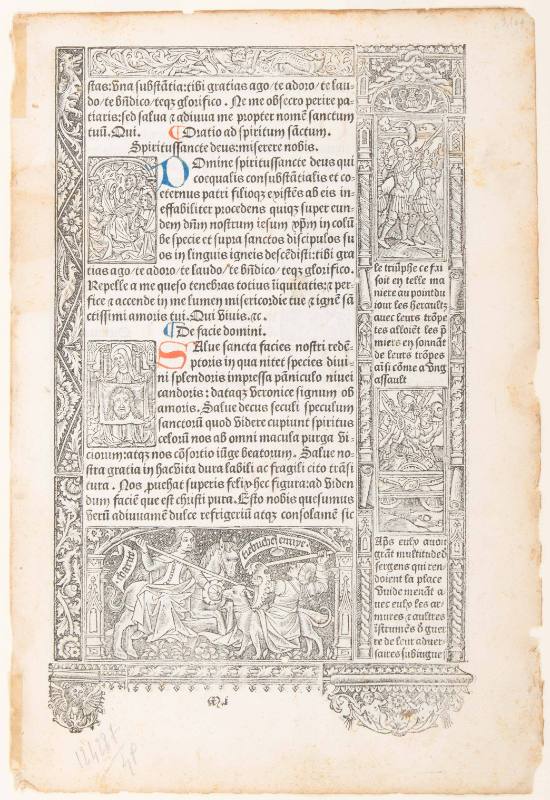 stas: vna substātia: tibi gratias ago/ te adoro/ te lau
do/ te bn̄dico/ teqȝ glorifico. Ne me obsecro perire pa-
tiaris: sed salua ⁊ adiuua me propter nomē sanctum
tuū. Qui. ¶ Oratio ad spiritum sāctum.
Spiritussancte deus: miserere nobis.
Domine spiritussancte deus qui
coequalis consubstātialis et co-
eternus patri filioqȝ existēs ab eis in-
effabiliter procedens quiqȝ super eun-
dem dn̄m nostrum iesum xp̄m in colū
be specie et supra sanctos discipulos su
os in linguis igneis descēdisti: tibi gra
tias ago/ te adoro/ te laudo/ te bn̄dico/ teqȝ glorifico.
Repelle a me queso tenebras totius iiquitatis: ⁊ per-
fice ⁊ accende in me lumen misericordie tue ⁊ ignē sā
ctissimi amoris tui. Qui viuis. ⁊c.
¶ De facie domini.
Salue sancta facies nostri redē-
ptoris in qua nitet species diui
ni splendoris impressa pāniculo niuei
candoris: dataqȝ veronice signum ob
amoris. Salue decus seculi speculum
sanctorū quod videre cupiunt spiritus
celorū nos ab omni macula purga vi-
ciorum: atqȝ nos cōsortio iūge beatorum. Salue no-
stra gratia in hac vita dura labili ac fragili cito trāsi
tura. Nos puehat superis felix hec figura: ad viden
dum faciē que est christi pura. Esto nobis quesumus
verū adiuuamē dulce refrigeriū atqȝ consolamē sic
charite
trebuchet enuye.
le triūphe ce fai
soit en telle ma
niere au point du
iour les heraultz
auec leurs trōpe
tes alloiēt les p̄
miers en sonnāt
de leurs trōpes
aīsi cōme a vng
assault
Aps̄ eulx auoit
grāt multitude d
sergens qui ren-
doient la place
vuide menāt a
uec eulx les ar-
mures ⁊ aultres
īstrumēs d̄ guer
re de leur aduer-
saires subiugues